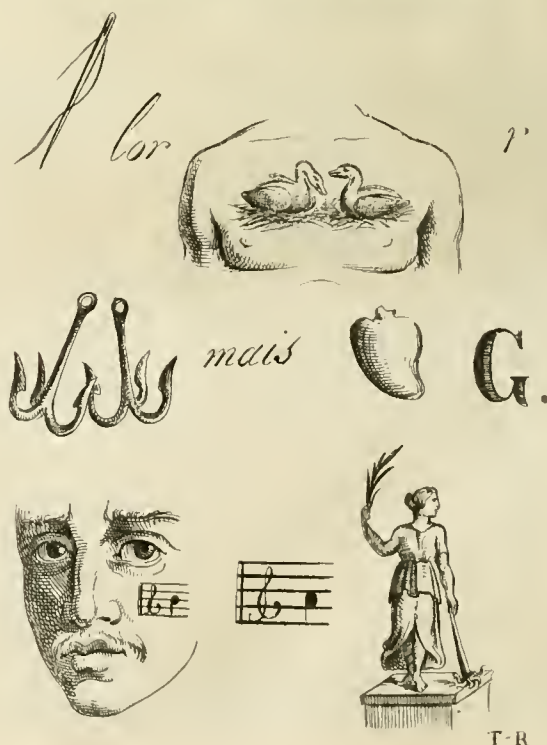 lor r
mais G.
T-B